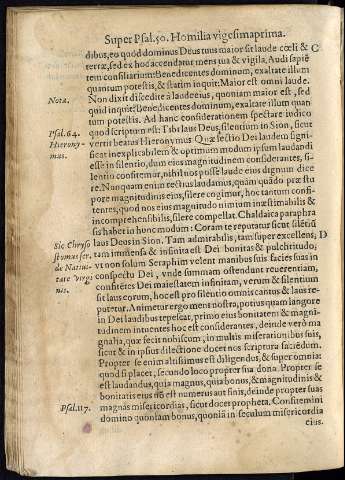 Super Psal.50. Homilia vigesimaprima.
dibus, eo quod dominus Deus tuus maior sit laude cœli & C
terræ, sed ex hoc accendatur mens tua & vigila. Audi sapiē
tem consiliarium: Benedicentes dominum, exaltate illum
quantum potestis, & statim inquit: Maior est omni laude.
Nota.
Non dixit discedite à laude eius, quoniam maior est, sed
quid inquit: Benedicentes dominum, exaltate illum quan
tum potestis. Ad hanc considerationem spectare iudico
Psal. 64.
quod scriptum est: Tibi laus Deus, silentium in Sion, sicut
Hierony-
mus.
vertit beatus Hieronymus. Quæ lectio Dei laudem signi-
ficat inexplicabilem & optimum modum ipsum laudandi
esse in silentio, dum eius magnitudinem considerantes, si-
lentio confitemur, nihil nos posse laude eius dignum dice
re. Nam quam enim rectius laudamus, quàm quādo præ stu
pore magnitudinis eius, silere cogimur, hoc tantum confi-
tentes, quod nos eius magnitudo nimium inæstimabilis &
incomprehensibilis, silere compellat. Chaldaica paraphra
sis habet in hunc modum: Coram te reputatur sicut silētiū
Sic Chryso
stomus ser.
de Natiui-
tate virgi
nis.
laus Deus in Sion. Tam admirabilis, tam super excellens, D
tam immensa & infinita est Dei bonitas & pulchritudo,
vt non solùm Seraphim velent manibus suis facies suas in
conspectu Dei, vnde summam ostendunt reuerentiam,
confitētes Dei maiestatem infinitam, verum & silentium
sit laus eorum, hoc est pro silentio omnis cantus & laus re-
putetur. Animetur ergo mens nostra, potius quàm langore
in Dei laudibus tepescat, primo eius bonitatem & magni-
tudinem intuentes hoc est considerantes, deinde verò ma
gnalia, quæ fecit nobiscum, in multis miserationibus suis,
sicut & in ipsius dilectione docet nos scriptura sacrēdem.
Propter se enim altissimus est diligendus, & super omnia:
quod si placet, secundo loco propter sua dona. Propter se
est laudandus, quia magnus, quia bonus, & magnitudinis &
bonitatis eius nō est numerus aut finis, deinde propter suas
Psal. 117.
magnas misericordias, sicut docet propheta. Confitemini
domino quoniam bonus, quoniā in seculum misericordia
eius.